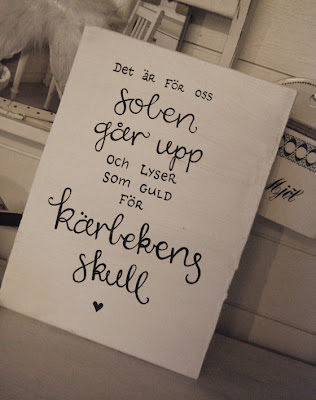 Det är för oss
solen
går upp
och lyser
som guld
för
kärlekens
skull
♥
Mjöl